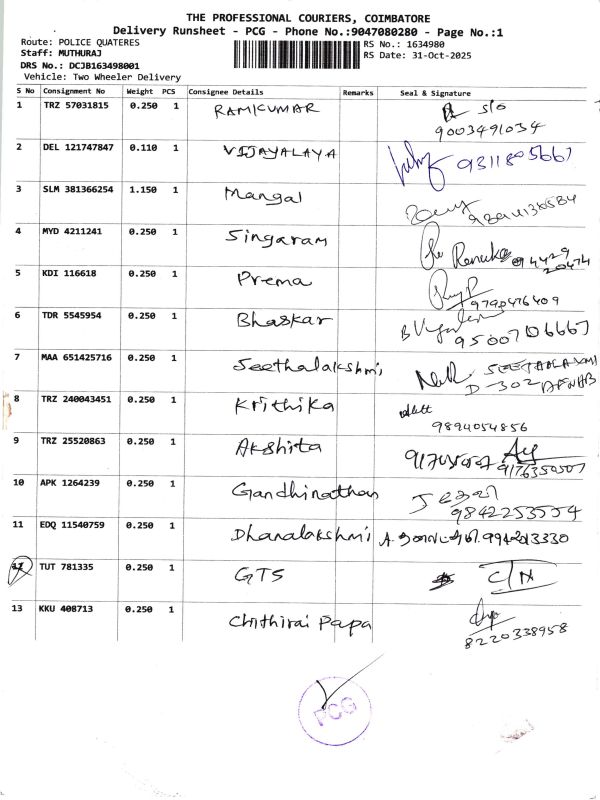 THE PROFESSIONAL COURIERS, COIMBATORE
Delivery Runsheet - PCG - Phone No.:9047080280 - Page No.:1
Route: POLICE QUATERES RS No.: 1634980
Staff: MUTHURAJ RS Date: 31-Oct-2025
DRS No.: DCJB163498001
Vehicle: Two Wheeler Delivery
S No Consignment No Weight PCS Consignee Details Remarks Seal & Signature
1 TRZ 57031815 0.250 1 RAMKUMAR S/o
9003491034
2 DEL 121747847 0.110 1 VIJAYALAYA 9311805667
3 SLM 381366254 1.150 1 Mangal
4 MYD 4211241 0.250 1 Singaram Renuka 94429
20474
5 KDI 116618 0.250 1 Prema
9790476409
6 TDR 5545954 0.250 1 Bhaskar
9500706667
7 MAA 651425716 0.250 1 Seethalakshmi SEETHALAXMI
D-302
8 TRZ 240043451 0.250 1 Krithika
9894054856
9 TRZ 25520863 0.250 1 Akshita
9176350507
10 APK 1264239 0.250 1 Gandhinathan
9842253554
11 EDQ 11540759 0.250 1 Dhanalakshmi
12 TUT 781335 0.250 1 GTS C/N
13 KKU 408713 0.250 1 Chithirai Papa
8220338958
PCG